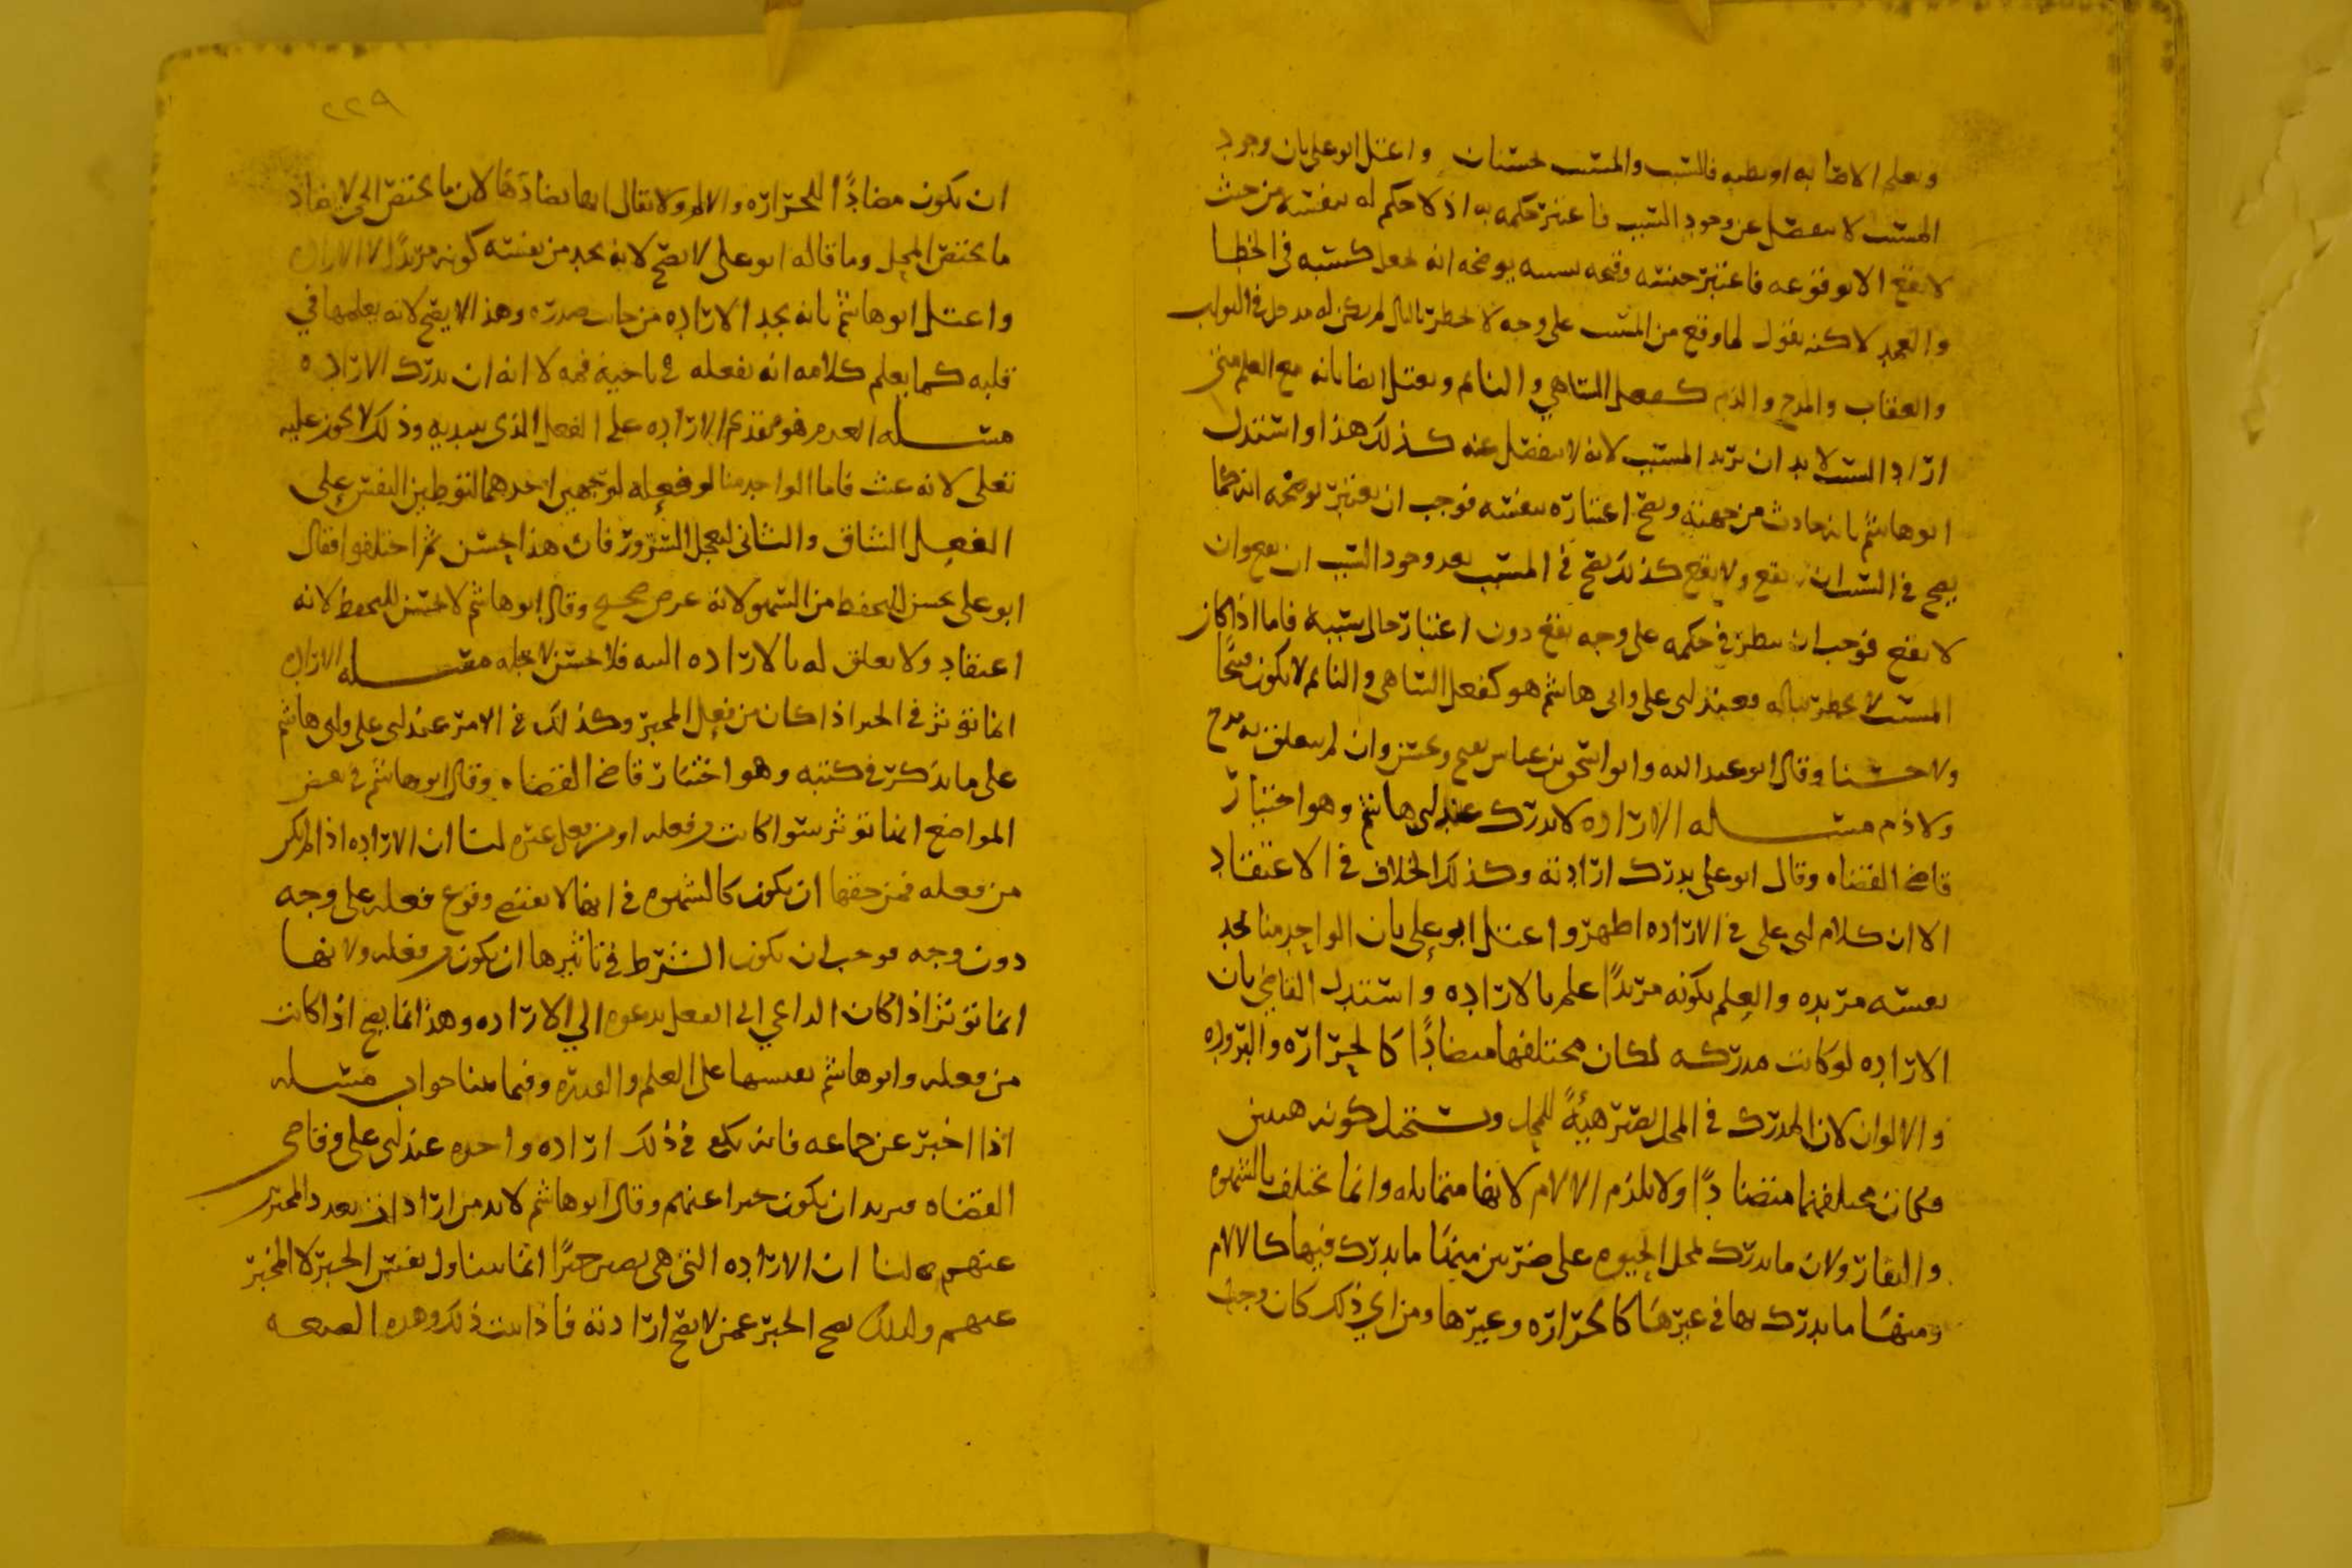 ويعلم الاصابه او يظنه فالسبب والمسبب حسنان واعتل ابو على بان وجود
المسبب لا ينفصل عن وجود السبب فاعتبر حكمه به اذ لا حكم له بنفسه من حيث
لا يقع الا بوقوعه فاعتبر حسنه وقبحه بسببه يوضحه انه لجعل كسببه في الخطا
والعمد لاكنه يقول لما وقع من المسبب على وجه لا يخطر بالبال لم يكن له مدخل في الثواب
والعقاب والمدح والذم كفعل الساهي والنائم ويعتل ايضا بانه مع العلم متى
اراد السبب لا بد ان يريد المسبب لانه لا ينفصل عنه كذلك هذا واستدل
ابو هاشم بانه حادث من جهته ويصح اعتباره بنفسه فوجب ان يعتبر يوضحه انه كما
يصح في السبب ان يقع ولا يقع كذلك يصح في المسبب بعد وجود السبب ان يقع وان
لا يقع فوجب ان ينظر في حكمه على وجه يقع دون اعتبار حال سببه فاما اذا كان
المسبب لا يخطر بباله فعند ابى على وابى هاشم هو كفعل الساهى والنائم لا يكون قبيحًا
ولا حسنا وقال ابو عبد الله وابو اسحق بن عياش يقبح ويحسن وان لم يتعلق به مدح
ولا ذم مسله الاراده لا تدرك عند ابى هاشم وهو اختيار
قاضي القضاه وقال ابو على يدرك ارادته وكذلك الخلاف في الاعتقاد
الا ان كلام ابى على في الاراده اظهر واعتل ابو على بان الواحد منا يجد
نفسه مريده والعلم بكونه مريدًا علم بالاراده واستدل القاضي بان
الاراده لو كانت مدركه لكان مختلفها متضادًا كالحراره والبروده
والالوان لان المدرك في المحل يصير هيئةً للمحل ويستحيل كونه هيئتين
فكان مختلفهما متضادًا ولا يلزم الالام لانها متماثله وانما تختلف بالشهوه
والنفار ولان ما يدرك لمحل الحيوه على ضربين منها ما يدرك فيها كالالام
ومنها ما يدرك بها في غيرها كالحراره وغيرها ومن اي ذلك كان وجب
٢٢٩
ان يكون مضادًا للحراره والالم ولا يقال انها يضادها لان ما يختص الحي لا يضاد
ما يختص المحل وما قاله ابو على لا يصح لانه يجد من نفسه كونه مريدًا لا الاراده
واعتل ابو هاشم بانه يجد الاراده من جانب صدره وهذا لا يصح لانه يعلمها في
قلبه كما يعلم كلامه انه يفعله في ناحية فمه لا انه ان يدرك الاراده
مسله العزم هو تقدم الاراده على الفعل الذى يبديه وذلك لا يجوز عليه
تعلى لانه عبث فاما الواحد منا لو فعله لوجهين احدهما لتوطين النفس على
الفعل الشاق والثانى لتعجل السرور فان هذا حسن ثم اختلفوا فقال
ابو على يحسن للتحفظ من السهو لانه غرض صحيح وقال ابو هاشم لا يحسن للتحفظ لانه
اعتقاد ولا تعلق له بالاراده البته فلا يحسن لاجله مسله الاراده
انما تؤثر في الخبر اذا كان من فعل المخبر وكذلك في الامر عند ابى على وابى هاشم
على ما يذكر في كتبه وهو اختيار قاضي القضاه وقال ابو هاشم في بعض
المواضع انما تؤثر سوا كانت من فعله او من فعل غيره لنا ان الاراده اذا لم تكن
من فعله فمن حقها ان يكون كالشهوه في انها لا تقتضي وقوع فعله على وجه
دون وجه فوجب ان يكون الشرط في تاثيرها ان يكون من فعله ولانها
انما تؤثر اذا كان الداعي الى الفعل يدعوه الي الاراده وهذا انما يصح اذا كانت
من فعله وابو هاشم يقيسها على العلم والقدره وفيما بينا جواب مسله
اذا اخبر عن جماعه فانه يكفى في ذلك اراده واحده عند ابى على وقاضى
القضاه فيريد ان يكون خبرا عنهم وقال ابو هاشم لا بد من ارادات بعدد المخبر
عنهم لنا ان الاراده التى هى يصير خبرًا انما تتناول نفس الخبر لا المخبر
عنهم ولذلك يصح الخبر عمن لا يصح ارادته فاذا ثبت ذلك وهذه الصيغه